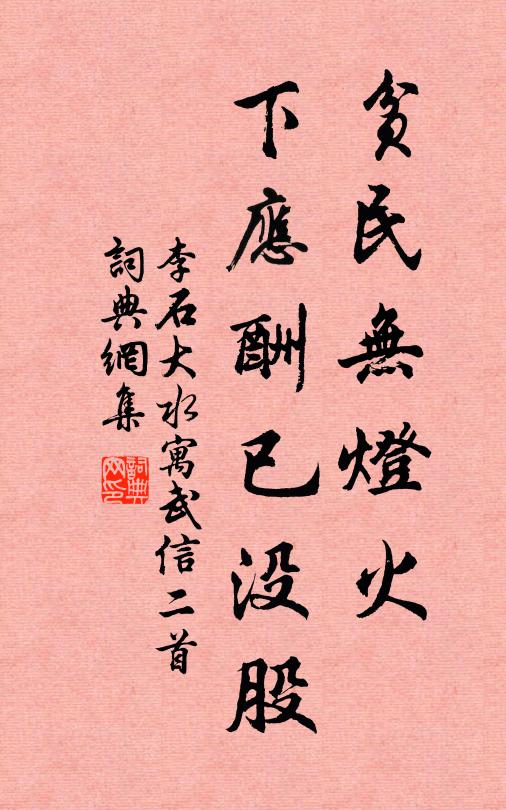 貧民無燈火
下應酬已没股
李石大水寓武信二首
詞典網集
詞典网印